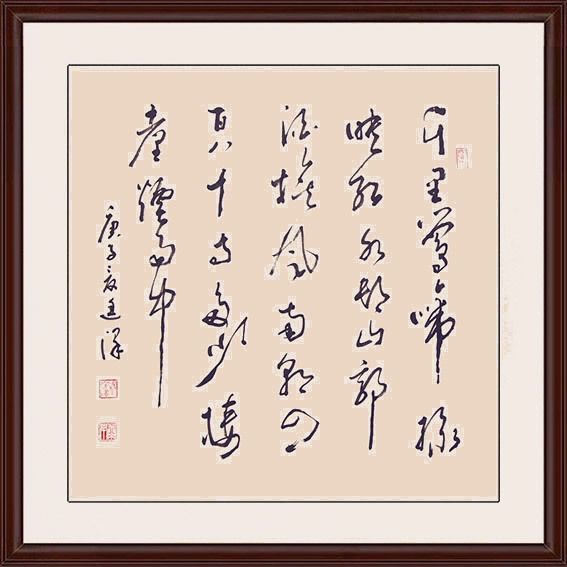 千里鶯啼綠
映紅水邨山郭
酒旗風南朝四
百八十寺多少樓
臺煙雨中
庚子夏廷